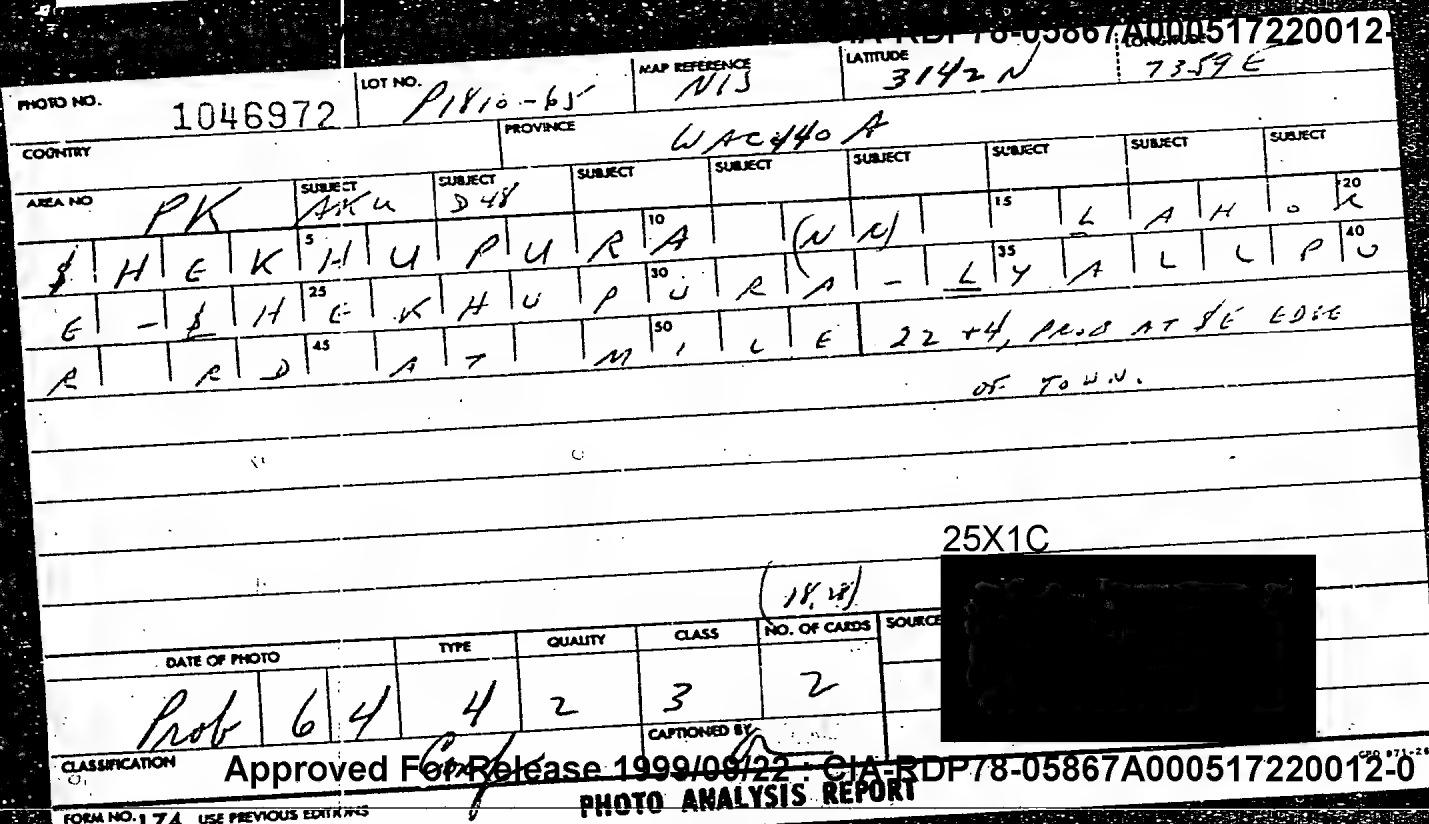 CIA-RDP78-05867A000517220012-
PHOTO NO. 1046972 LOT NO. P1810-65 MAP REFERENCE NIS LATITUDE 3142 N LONGITUDE 7359 E
COUNTRY PROVINCE WAC 440 A
AREA NO PK SUBJECT AKU SUBJECT D48 SUBJECT SUBJECT SUBJECT SUBJECT SUBJECT SUBJECT
$HEK 5 HUPUR 10 A (NN) 15 LAHO 20 R
E-$H 25 EKHUP 30 URA-L 35 YALLP 40 U
R RD 45 AT M 50 ILE 22 +4, PROB AT $E EDGE
OF TOWN.
25X1C
(18,28)
DATE OF PHOTO TYPE QUALITY CLASS NO. OF CARDS SOURCE
Prob 64 4 2 3 2
CLASSIFICATION Conf CAPTIONED BY GPO 971-26
Approved For Release 1999/09/22 : CIA-RDP78-05867A000517220012-0
PHOTO ANALYSIS REPORT
FORM NO. 174 USE PREVIOUS EDITIONS